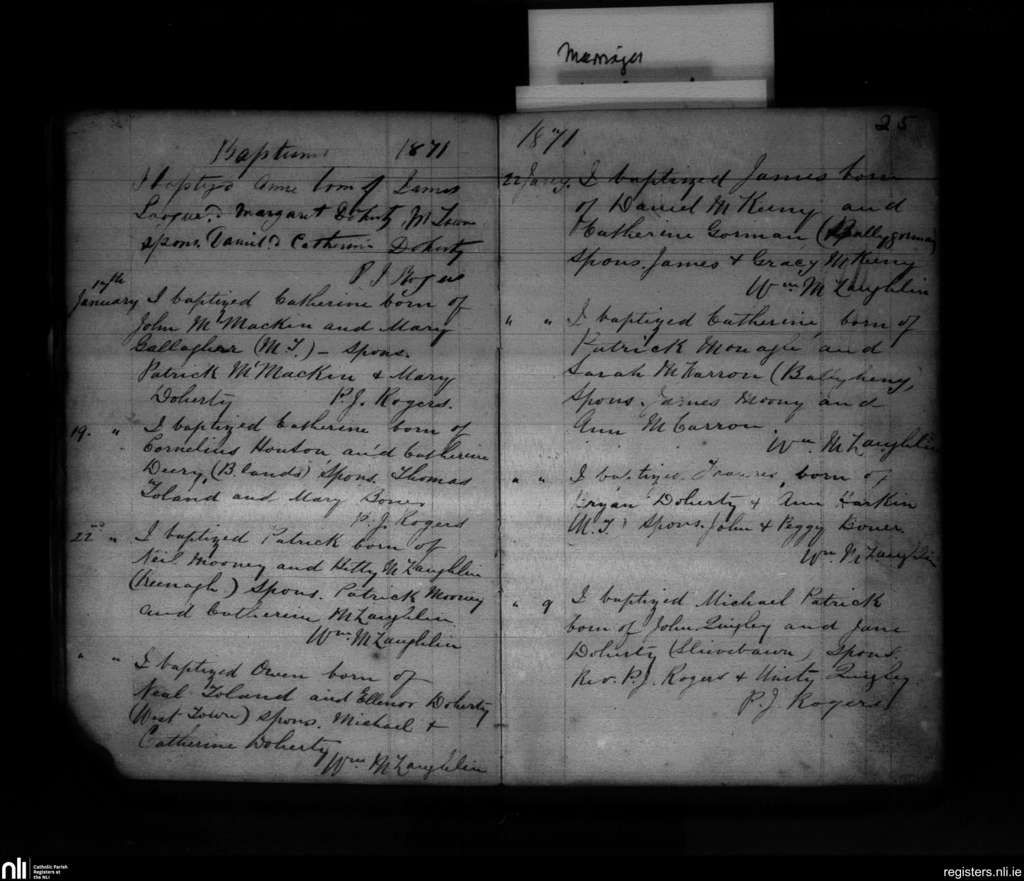 Marriages
Baptisms 1871
I baptized Anne born of James
Margaret Doherty M. Town
spons. Daniel & Catherine Doherty
P J Rogers
17th
January I baptized Catherine born of
John McMackin and Mary
Gallagher (M.T.) - Spons.
Patrick McMackin & Mary
Doherty P.J. Rogers.
19. " I baptized Catherine born of
Cornelius Houton and Catherine
Deery (B.lands) Spons. Thomas
Toland and Mary Doney
P.J. Rogers
22nd " I baptized Patrick born of
Neil Mooney and Kitty McLaughlin
(Keenagh) Spons. Patrick Mooney
and Catherine McLaughlin
Wm McLaughlin
" " I baptized Owen born of
Neal Toland and Ellenor Doherty
(West Town) Spons. Michael &
Catherine Doherty
Wm McLaughlin
1871 25
22 Jany. I baptized James born
of Daniel McKeeny and
Catherine Gorman (Ballygorman)
Spons. James & Gracy McKeeny
Wm McLaughlin
" " I baptized Catherine born of
Patrick Monagle and
Sarah McKarron (Ballyheny)
Spons. James Moony and
Ann McCarron.
Wm McLaughlin
" " I baptized Frances, born of
Bryan Doherty & Ann Harkin
M.T. Spons. John & Peggy Doner
Wm McLaughlin
" 9 I baptized Michael Patrick
born of John Quigley and Jane
Doherty (Slievebawn) Spons.
Rev. P.J. Rogers & Unity Quigley
P.J. Rogers
nli Catholic Parish
Registers at
the NLI
registers.nli.ie